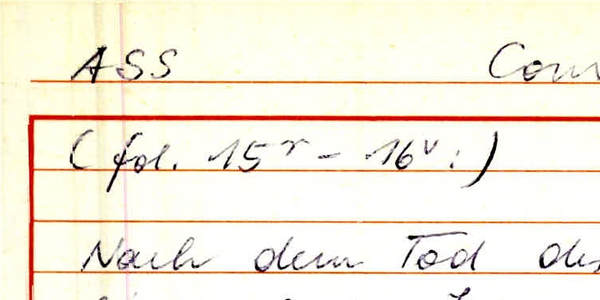 ASS
(fol. 15r - 16v:)
Nach dem Tod